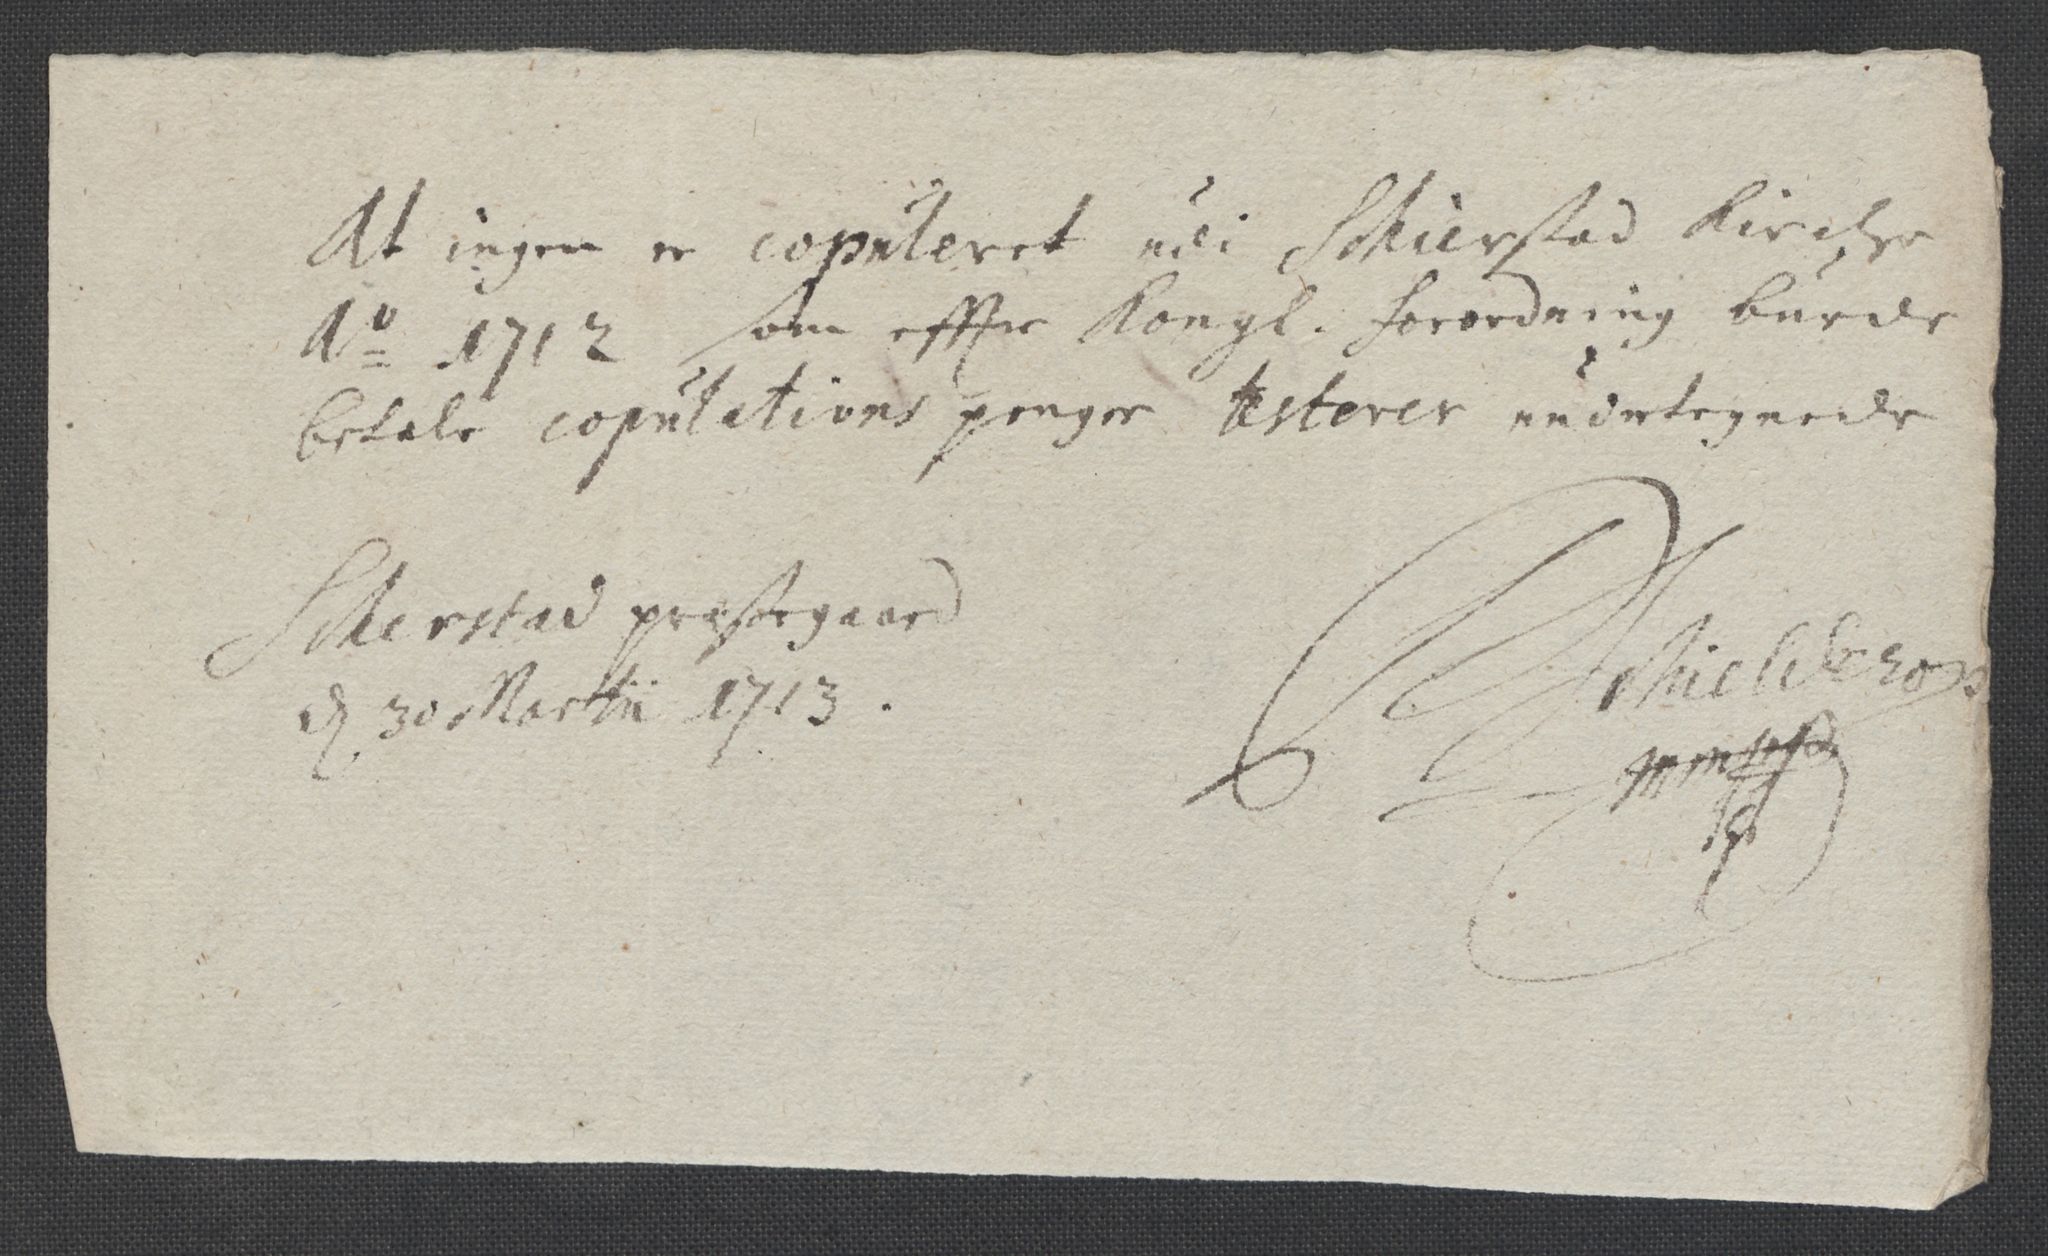 At ingen er copuleret udi Schierstad Kirche
Ao 1712 som effter Kongl. forordning burde
betale copulations penger testerer undertegnede
Schierstad præstegaard
d 30 Martii 1713.
Schielderop
mpp